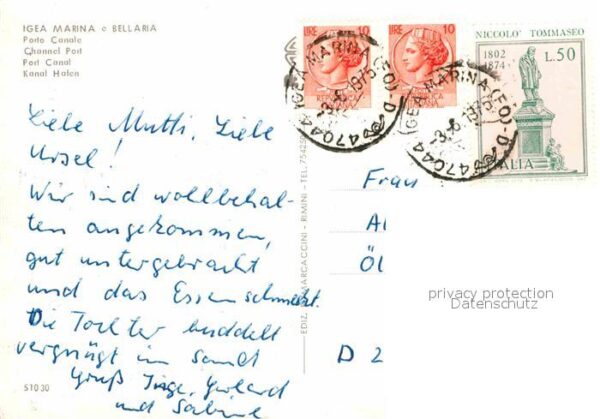 IGEA MARINA e BELLARIA
Porto Canale
Channel Port
Port Canal
Kanal Hafen
LIRE 10
LIRE 10
NICCOLO' TOMMASEO
1802
1874
L.50
ITALIA
47044 IGEA MARINA (FO)
-3.-6.1975
47044 IGEA MARINA (FO)
-3.-6.1975
Liebe Mutti, Liebe
Ursel!
Wir sind wollbehal-
ten angekommen,
gut untergebracht
und das Essen schmeckt.
Die Tochter buddelt
vergnügt im Sand
Gruß Inge, Gerhard
und Sabine
Frau
Al
Öl
D 2
privacy protection
Datenschutz
EDIZ. MARCACCINI - RIMINI - TEL. 75425
51030